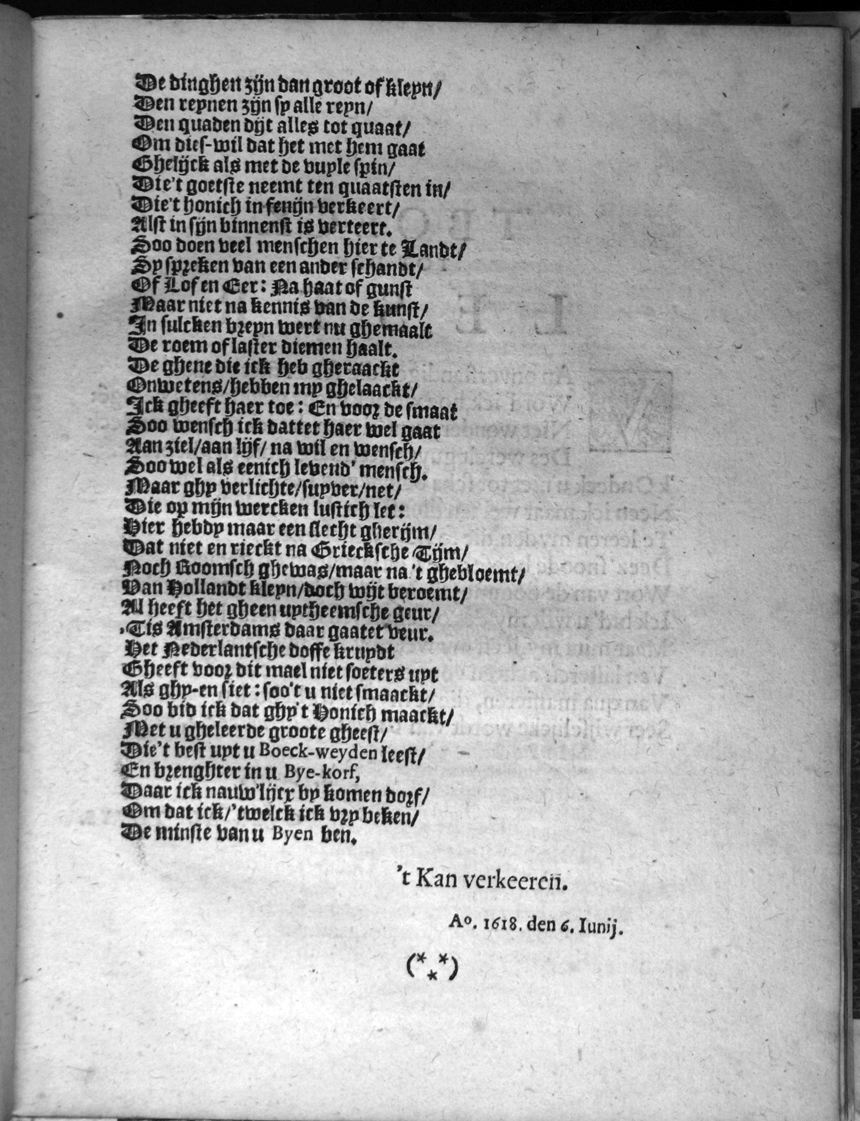 De dinghen zijn dan groot of kleyn/
Den reynen zijn sy alle reyn/
Den quaden dijt alles tot quaat/
Om dies-wil dat het met hem gaat
Ghelijck als met de vuyle spin/
Die't goetste neemt ten quaatsten in/
Die't honich in fenijn verkeert/
Alst in sijn binnenst is verteert.
Soo doen veel menschen hier te Landt/
Sy spreken van een ander schandt/
Of Lof en Eer: Na haat of gunst
Maar niet na kennis van de kunst/
In sulcken breyn wert nu ghemaalt
De roem of laster diemen haalt.
De ghene die ick heb gheraackt
Onwetens/hebben my ghelaackt/
Ick gheeft haer toe: En voor de smaat
Soo wensch ick dattet haer wel gaat
Aan ziel/aan lijf/ na wil en wensch/
Soo wel als eenich levend' mensch.
Maar ghy verlichte/suyver/net/
Die op mijn wercken lustich let:
Hier hebdy maar een slecht gherijm/
Dat niet en rieckt na Grieksche Tijm/
Noch Roomsch ghewas/maar na 't ghebloemt/
Van Hollandt kleyn/doch wijt beroemt/
Al heeft het gheen uytheemsche geur/
'Tis Amsterdams daar gaatet veur.
Het Nederlantsche dosse kruydt
Gheeft voor dit mael niet soeters uyt
Als ghy-en siet: soo't u niet smaackt/
Soo bid ick dat ghy't Honich maackt/
Met u gheleerde groote gheest/
Die't best uyt u Boeck-weyden leest/
En brenghter in u Bye-korf,
Daar ick nauw'lijcx by komen dorf/
Om dat ick/'twelck ick vry beken/
De minste van u Byen ben.
't Kan verkeeren.
Aº. 1618. den 6. Iunij.
(***)